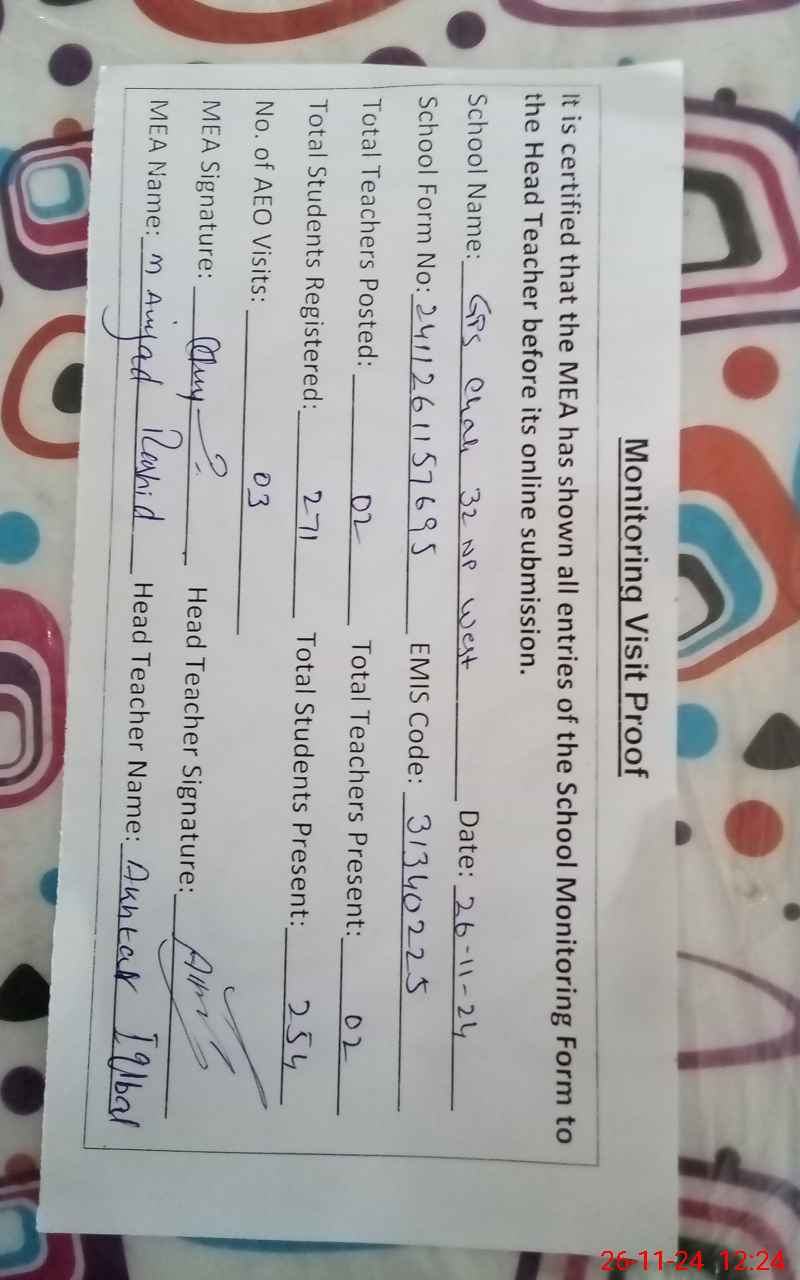 Monitoring Visit Proof
It is certified that the MEA has shown all entries of the School Monitoring Form to
the Head Teacher before its online submission.
School Name: GPS Chak 32 NP West Date: 26-11-24
School Form No: 2411261157695 EMIS Code: 31340225
Total Teachers Posted: 02 Total Teachers Present: 02
Total Students Registered: 271 Total Students Present: 254
No. of AEO Visits: 03
MEA Signature: Head Teacher Signature:
MEA Name: M Amjad Rashid Head Teacher Name: Akhtar Iqbal
26-11-24 12:24